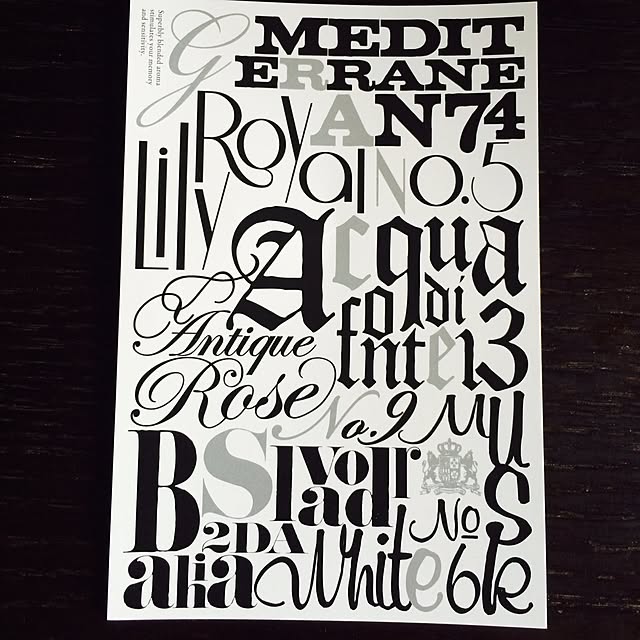 Superbly blended aroma
stimulates your memory
and sensitivity.
G
MEDIT
ERRANE
AN 74
Lily
Royal No.5
Acqua
di
fonte 13
Antique
Rose No.9
MUSk
BS
lad
2DA
White
No 6